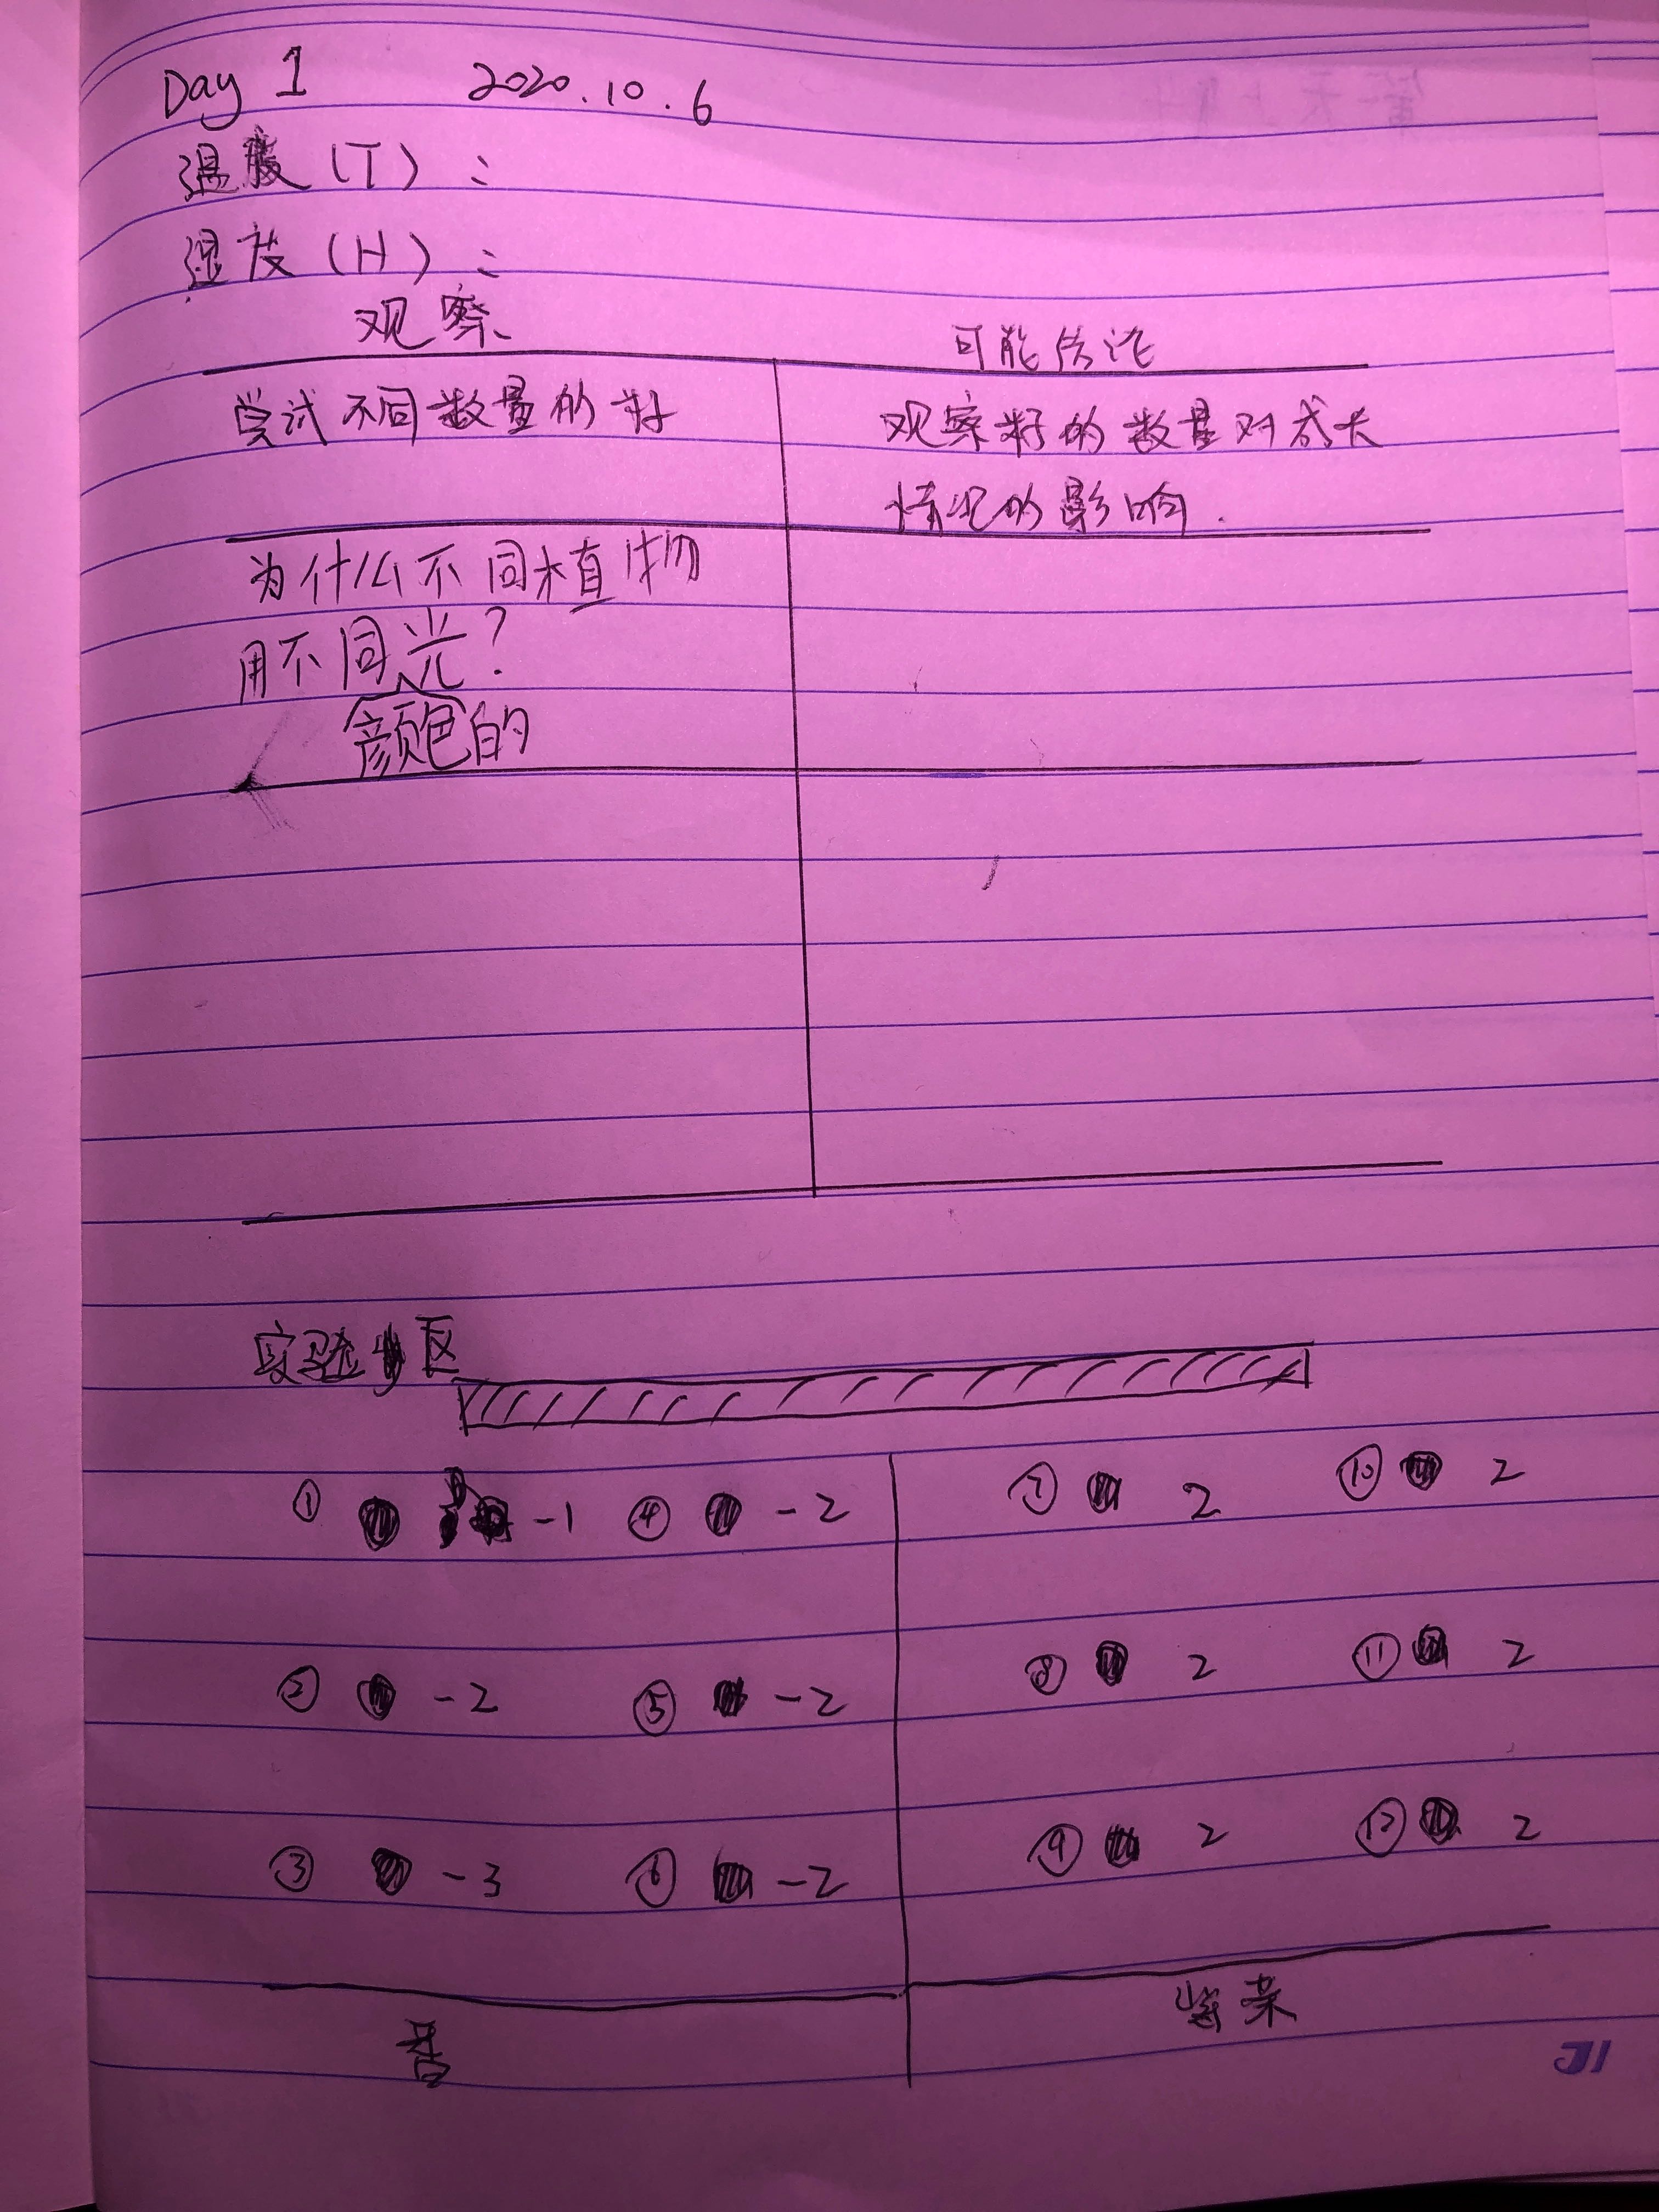 Day 1 2020.10.6
温度(T):
湿度(H):
观察 可能结论
尝试不同数量的籽 观察籽的数量对成长
情况的影响.
为什么不同植物
用不同光?
颜色的
实验 区
① -1 ④ -2 ⑦ 2 ⑩ 2
② -2 ⑤ -2 ⑧ 2 ⑪ 2
③ -3 ⑥ -2 ⑨ 2 ⑫ 2
紫菜